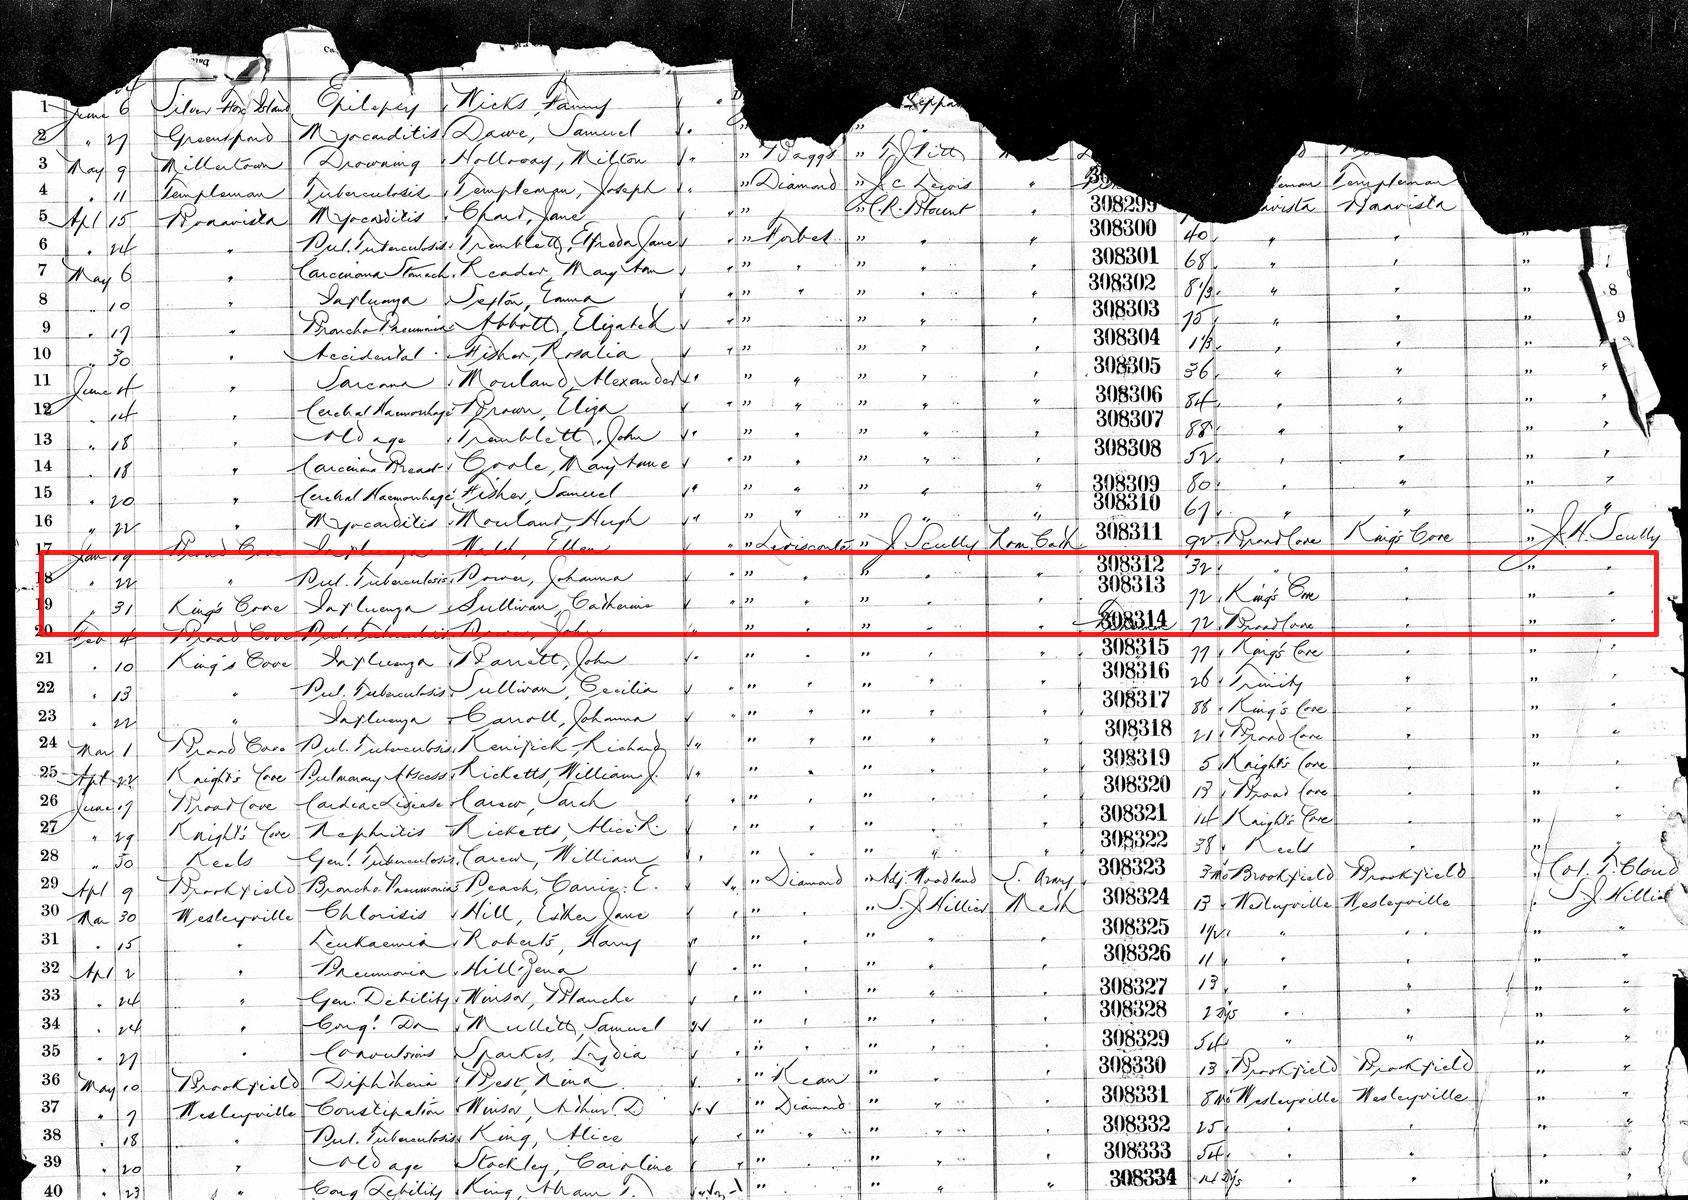 1 June 6 Silver Hare Island Epilepsy Hicks, Fanny
2 " 27 Greenspond Myocarditis Dawe, Samuel " "
3 May 9 Millertown Drowning Holloway, Milton " " T J Pitt
4 " 11 Templeman Tuberculosis Templeman, Joseph " Diamond " J. C. Lewis " Templeman
5 Apl 15 Bonavista Myocarditis Chard, Jane " " C. R. Blount " 308299 Bonavista
6 " 24 " Pul. Tuberculosis Tremblett, Elfreda Jane " Forbes " " " 308300 40 " "
7 May 6 " Carcinoma Stomach Reader, Mary Ann " " " " " 308301 68 " " "
8 " 10 " Influenza Sexton, Emma " " " " " 308302 " " " 8
9 " 17 " Broncho Pneumonia Abbott, Elizabeth " " " " " 308303 75 " " " 9
10 " 30 " Accidental Fisher, Rosalia " " " " " 308304 " " "
11 June 4 " Sarcoma Mouland, Alexander " " " " " 308305 36 " " " "
12 " 14 " Cerebral Haemorrhage Brown, Eliza " " " " " 308306 84 " " " "
13 " 18 " Old age Tremblett, John " " " " " 308307 88 " " " "
14 " 18 " Carcinoma Breast " " " " " 308308 52 " " " "
15 " 20 " Cerebral Haemorrhage Fisher, Samuel " " " " " 308309 80 " " " "
16 " 22 " Myocarditis Mouland, Hugh " " " " " 308310 67 " " " "
17 Jan 19 Broad Cove Influenza Walsh, Ellen " " J. Scully Rom. Cath 308311 92 Broad Cove King's Cove " J. H. Scully
18 " 22 " Pul. Tuberculosis Power, Johanna " " " " " 308312 32 " " " "
19 " 31 King's Cove Influenza Sullivan, Catherine " " " " " 308313 72 King's Cove " " "
20 Feb 4 Broad Cove Pul. Tuberculosis Power, John " " " " " 308314 72 Broad Cove " " "
21 " 10 King's Cove Influenza Barrett, John " " " " " 308315 77 King's Cove " " "
22 " 13 " Pul. Tuberculosis Sullivan, Cecilia " " " " " 308316 26 Trinity " " "
23 " 22 " Influenza Carroll, Johanna " " " " " 308317 88 King's Cove " " "
24 Mar 1 Broad Cove Pul. Tuberculosis Kenifick, Richard " " " " " 308318 21 Broad Cove " " "
25 Apl 22 Knight's Cove Pulmonary Abscess Ricketts, William J. " " " " " 308319 5 Knight's Cove " " "
26 June 7 Broad Cove Cardiac Disease Carew, Sarah " " " " " 308320 13 Broad Cove " " "
27 " 29 Knight's Cove Nephritis Ricketts, Alice R. " " " " " 308321 14 Knight's Cove " " "
28 " 30 Keels Gen. Tuberculosis Carew, William " " " " " 308322 38 Keels " " "
29 Apl 9 Brookfield Broncho Pneumonia Peach, Carrie E. " Diamond " Adj. Woodland S. Army 308323 3 mo Brookfield Brookfield " Col. T. Cloud
30 Mar 30 Wesleyville Chlorisis Hill, Esther Jane " " S. J. Hillier Meth 308324 13 Wesleyville Wesleyville " S. J. Hillier
31 " 15 " Leukaemia Roberts, Harry " " " " " 308325 " " " "
32 Apl 2 " Pneumonia Hill, Zena " " " " " 308326 11 " " " "
33 " 24 " Gen. Debility Winsor, Blanche " " " " " 308327 13 " " " "
34 " 24 " Cong. Do Mullett, Samuel " " " " " 308328 2 Dys " " " "
35 " 27 " Convulsions Sparkes, Lydia " " " " " 308329 54 " " " "
36 May 10 Brookfield Diphtheria Best, Nina " Kean " " " 308330 13 Brookfield Brookfield " "
37 " 7 Wesleyville Constipation Winsor, Arthur D " Diamond " " " 308331 8 mo Wesleyville Wesleyville " "
38 " 18 " Pul. Tuberculosis King, Alice " " " " " 308332 25 " " " "
39 " 20 " Old age Stockley, Caroline " " " " " 308333 54 " " " "
40 " 23 " Cong Debility King, Abram T. " " " " " 308334 14 Dys " " " "